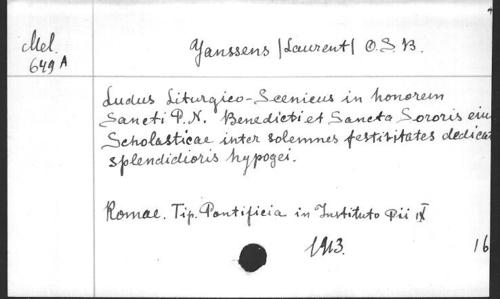 Mel.
649 A
Janssens /Laurent/ O.S.B.
Ludus Liturgico-Scenicus in honorem
Sancti P.N. Benedicti et Sancta Sororis eiu
Scholasticae inter solemnes festivitates dedicat
splendidioris hypogei.
Romae. Tip. Pontificia in Instituto Pii IX
1913.
16